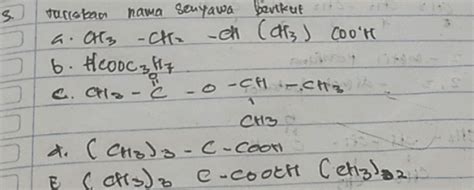 5. Tuliskan nama senyawa berikut
a. CH3 - CH2 - CH (CH3) COOH
b. HCOOC3H7
O
c. CH3 - C - O - CH - CH3
CH3
d. (CH3)3 - C - COOH
E (CH3)3 C - COOCH (CH3)2